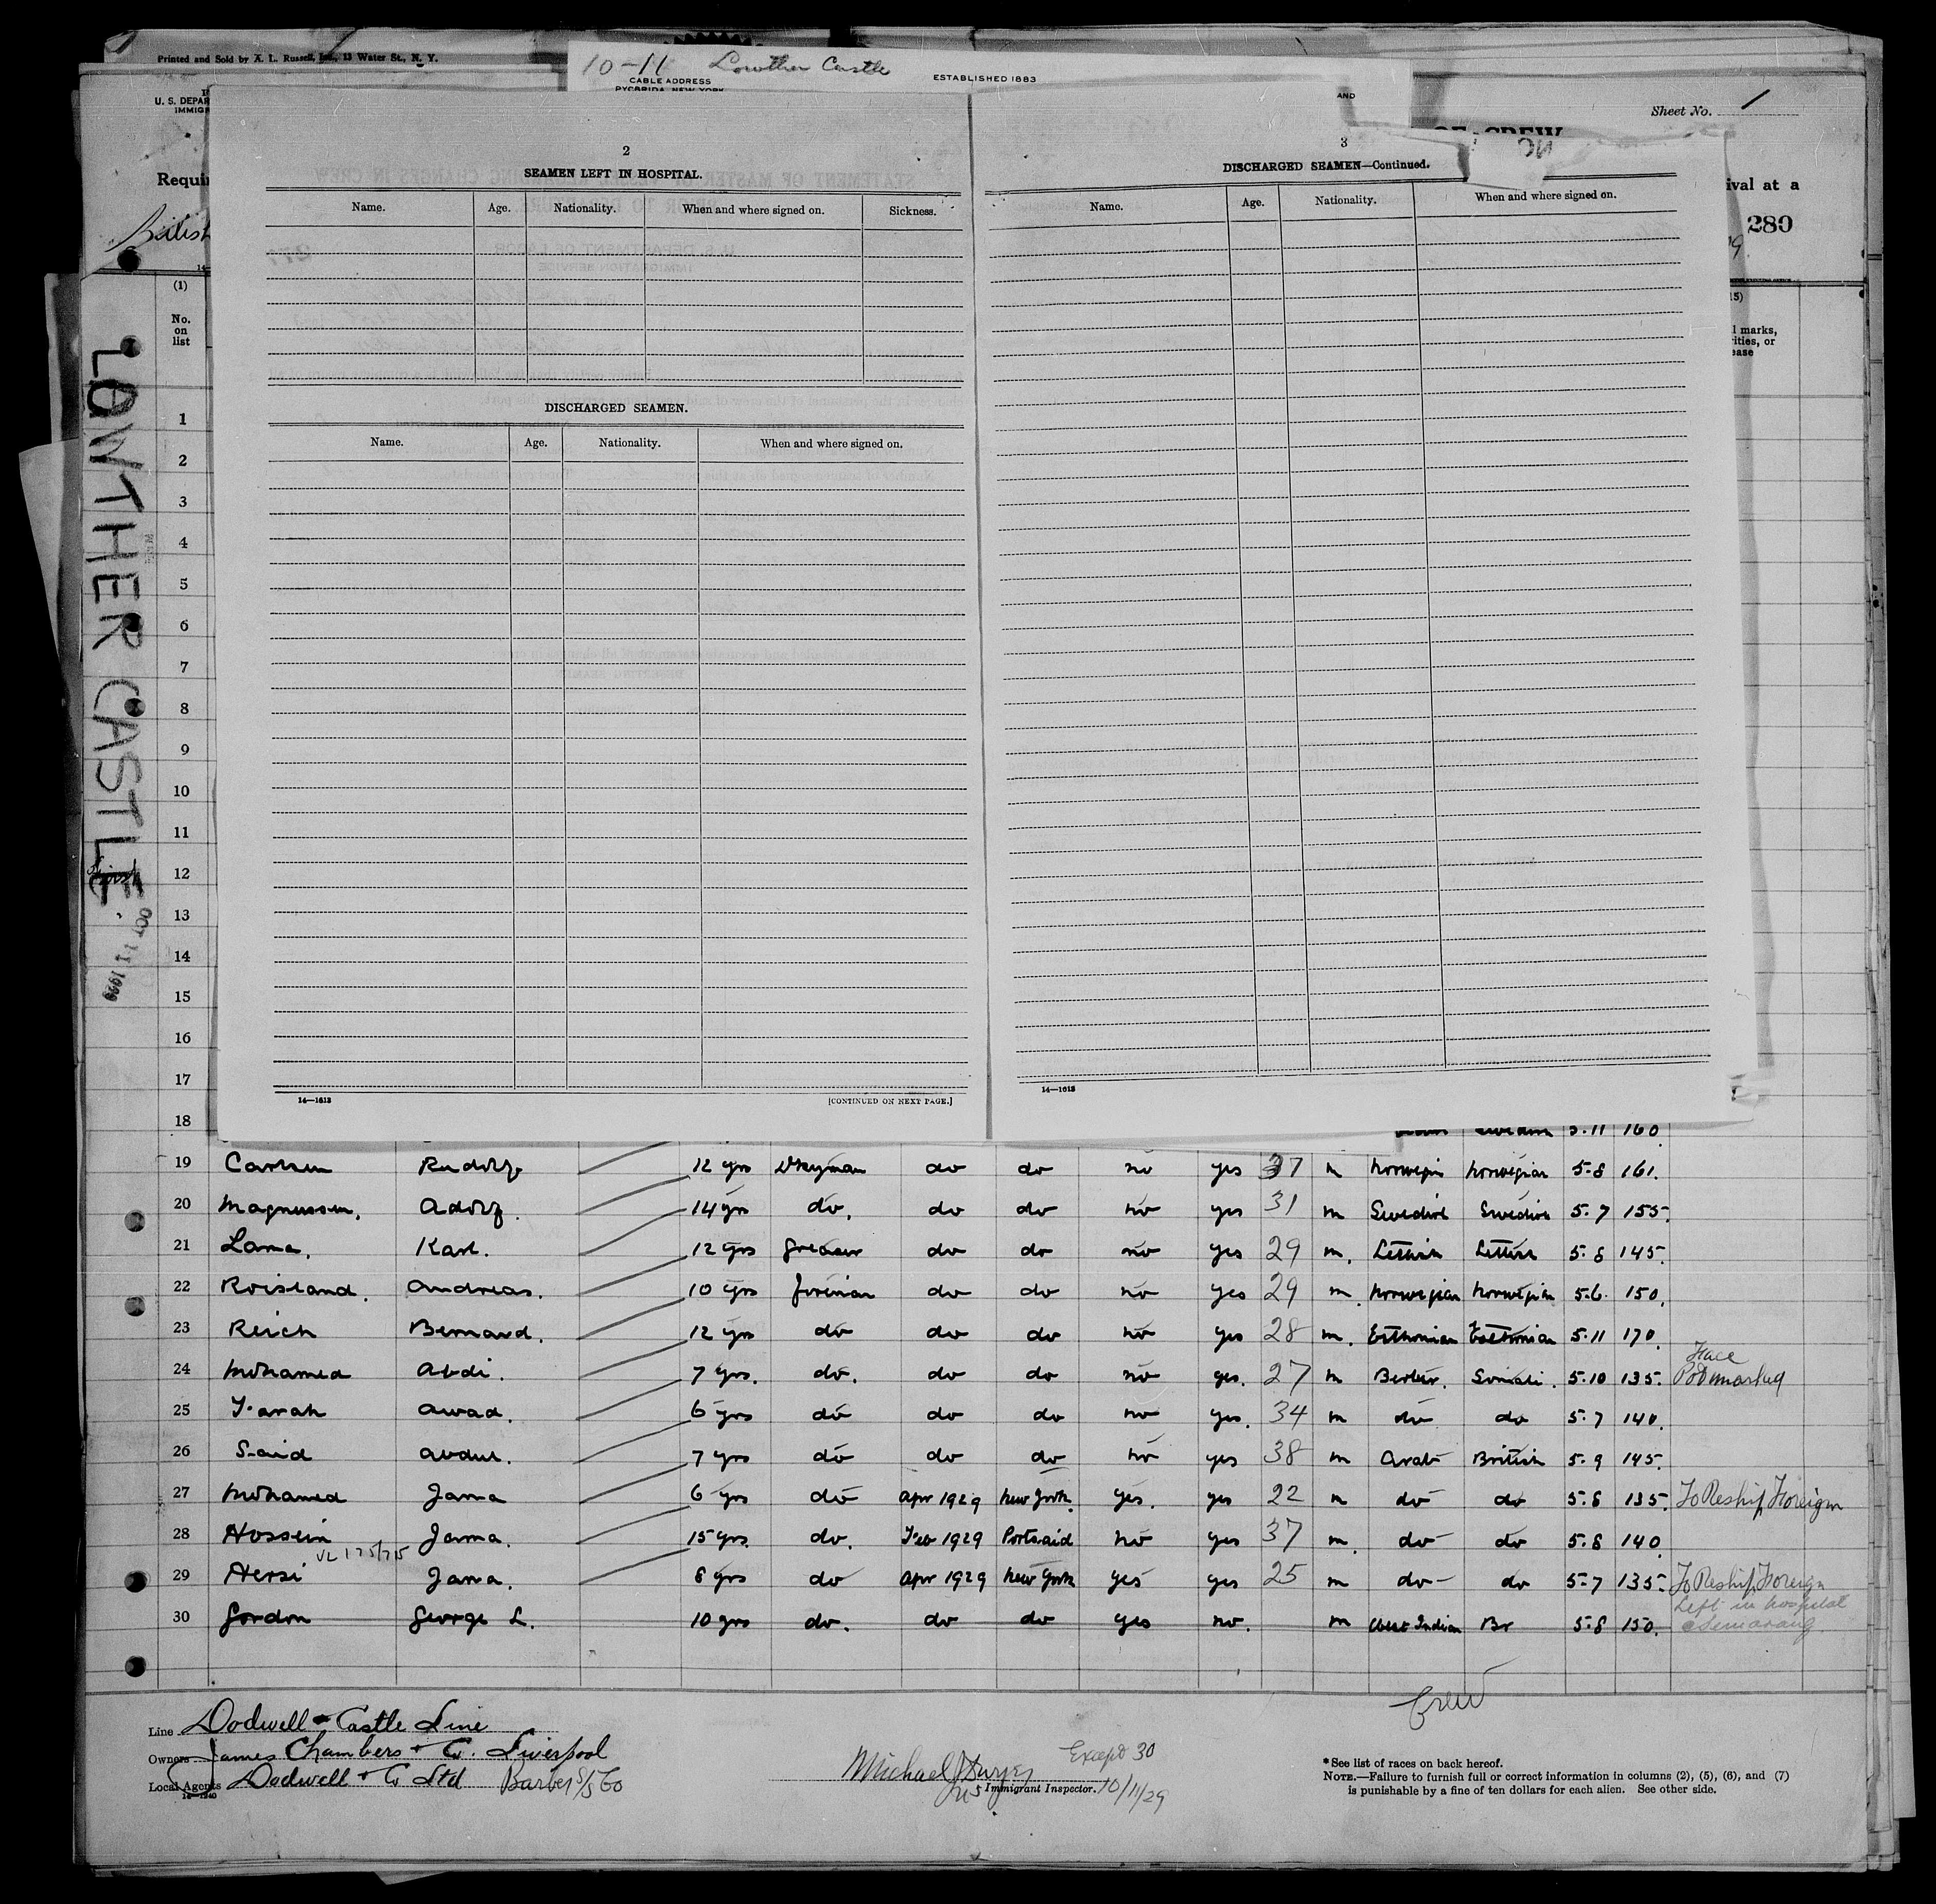 Printed and Sold by A. L. Russell, Inc., 13 Water St., N. Y.
10-11 Lowther Castle
CABLE ADDRESS
PYCBRIDA, NEW YORK
ESTABLISHED 1883
U. S. DEPAR
IMMIG
AND
Sheet No. 1
OF CREW
Requi
ival at a
British
280
(1)
No.
on
list
l marks,
rities, or
ease
LOWTHER CASTLE
OCT 11 1929
2
SEAMEN LEFT IN HOSPITAL.
Name. Age. Nationality. When and where signed on. Sickness.
DISCHARGED SEAMEN.
Name. Age. Nationality. When and where signed on.
14—1613
[CONTINUED ON NEXT PAGE.]
3
DISCHARGED SEAMEN—Continued.
Name. Age. Nationality. When and where signed on.
14—1613
1
2
3
4
5
6
7
8
9
10
11
12
13
14
15
16
17
18 5.11 160.
19 Carlsen Rudolf 12 yrs Dkeyman do do no yes 37 m Norwegian Norwegian 5.8 161.
20 Magnussen. Adolf. 14 yrs do. do do no yes 31 m Swedish Swedish 5.7 155.
21 Lama. Karl. 12 yrs Greaser do do no yes 29 m. Lettish Lettish 5.8 145.
22 Roisland. Andreas. 10 yrs fireman do do no yes 29 m. Norwegian Norwegian 5.6. 150.
23 Reich Bernard. 12 yrs do do do no yes 28 m. Esthonian Esthonian 5.11 170.
24 Mohamed Abdi. 7 yrs. do. do do no yes. 27 m Berber. Somali. 5.10 135. Face Pockmarked
25 Farah Awad. 6 yrs do do do no yes. 34 m do do 5.7 140.
26 Said Abdul. 7 yrs do do do no yes 38 m Arab British 5.9 145.
27 Mohamed Jama 6 yrs do Apr 1929 New York. yes. yes 22 m do do 5.8 135. To Reship Foreign
28 Hossein Jama. 15 yrs. do. Feb 1929 Portsaid no yes 37 m. do do 5.8 140.
29 Hersi Jama. 8 yrs do Apr 1929 New York yes yes 25 m do do 5-7 135. To Reship Foreign
30 Gordon George L. 10 yrs do. do do yes no. m West Indian Br 5.8 150. Left in hospital Semarang
Crew
Line Dodwell - Castle Line
Owners James Chambers & Co. Liverpool
Local Agents Dodwell & Co Ltd Barber S/S Co
14—1240
Except 30
Immigrant Inspector. 10/11/29
*See list of races on back hereof.
NOTE.—Failure to furnish full or correct information in columns (2), (5), (6), and (7)
is punishable by a fine of ten dollars for each alien. See other side.